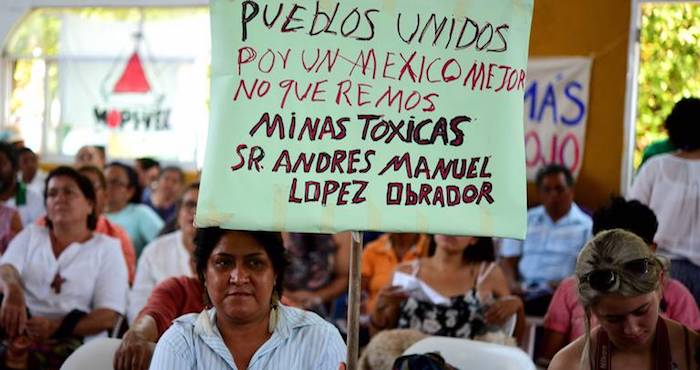 PUEBLOS UNIDOS
POR UN MEXICO MEJOR
NO QUEREMOS
MINAS TOXICAS
SR. ANDRES MANUEL
LOPEZ OBRADOR
MÁS
OJO